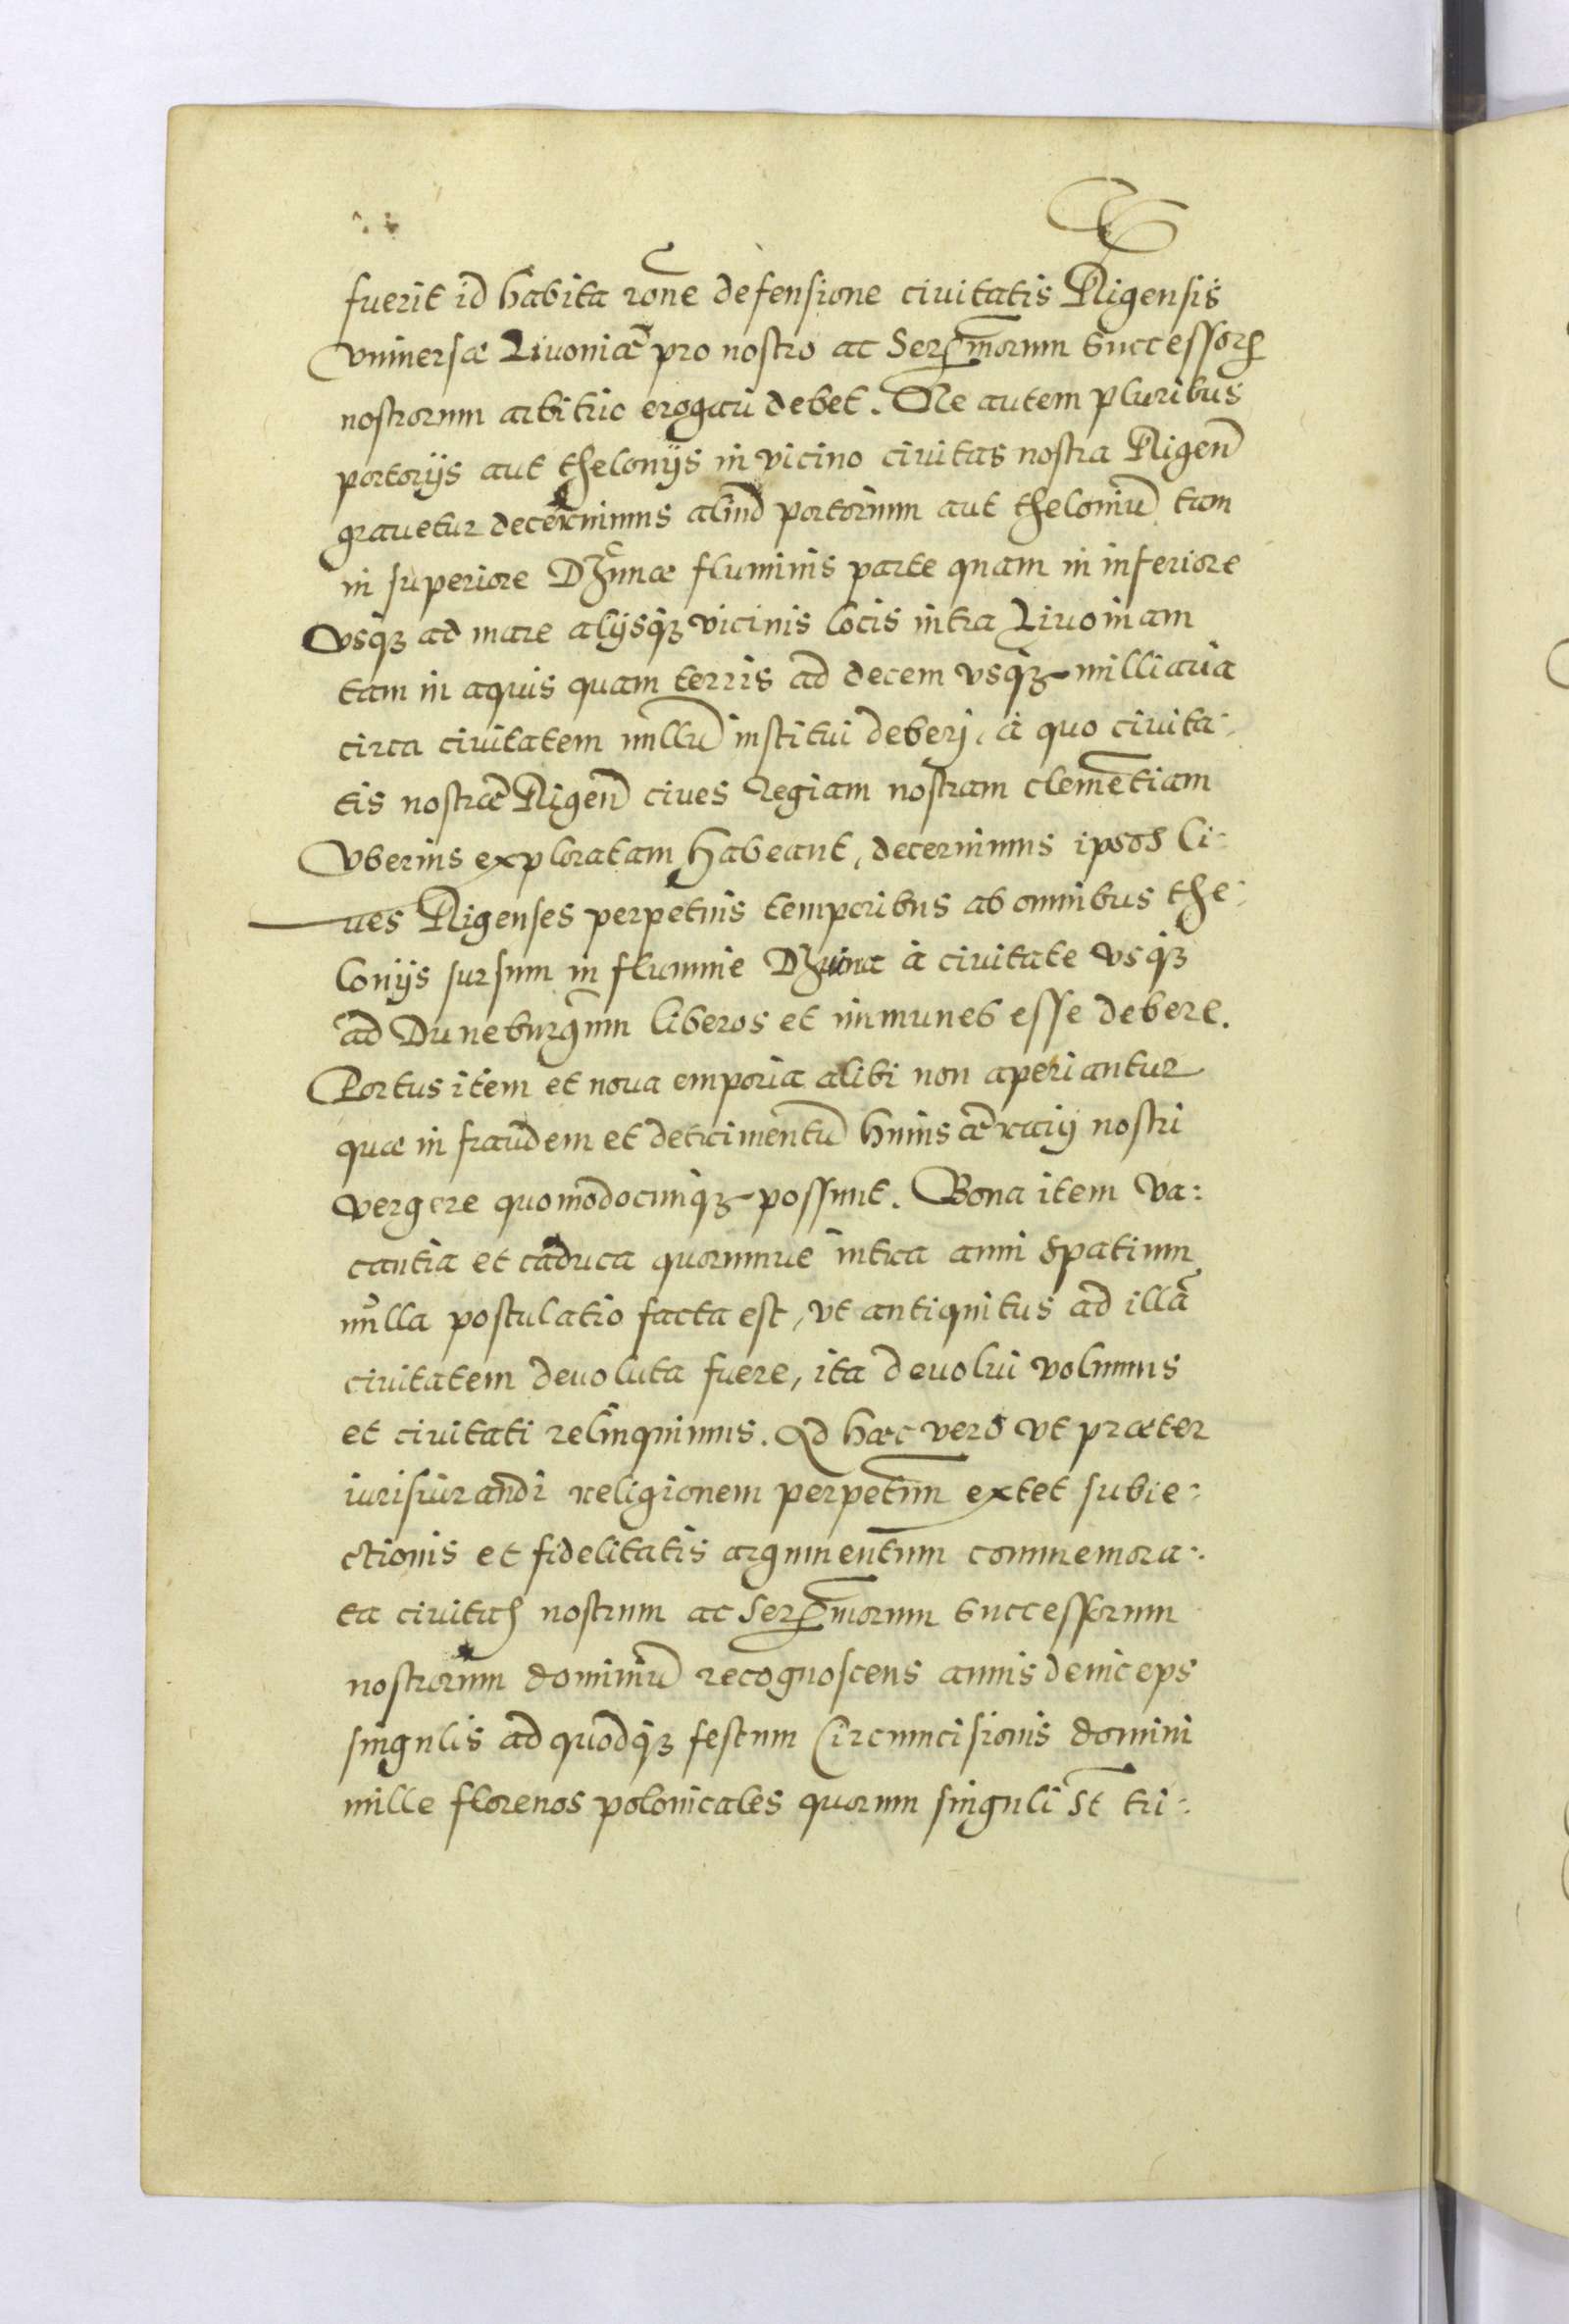 fuerit id habita rõne defensione ciuitatis Rigensis
vniuersæ Liuoniæ pro nostro ac Serẽmorum Successorũ
nostrorum arbitrio erogari debet. Ne autem pluribus
portorijs aut thelonijs in vicino ciuitas nostra Rigeñ
grauetur decernimus aliud portorium aut theloniũ tam
in superiore Dzunæ fluminis parte quam in inferiore
vsqꝫ ad mare alijsqꝫ vicinis locis intra Liuoniam
tam in aquis quam terris ad decem vsqꝫ milliaria
circa ciuitatem nullũ institui deberj, à quo ciuita:
tis nostræ Rigeñ ciues regiam nostram clemẽtiam
vberius exploratam habeant, decernimus ipsos Ci:
ues Rigenses perpetuis temporibus ab omnibus the:
lonijs sursum in flumine Dzuina à ciuitate vsqꝫ
ad Duneburgum liberos et immunes esse debere.
Portus item et noua emporia alibi non aperiantur
quæ in fraudem et detrimentũ huius ærarij nostri
vergere quomodocunqꝫ possunt. Bona item va:
cantia et caduca quorumue intra anni spatium
nulla postulatio facta est, vt antiquitus ad illã
ciuitatem deuoluta fuere, ita deuolui volumus
et ciuitati relinquimus. Ad hæc vero vt præter
iurisiurandi religionem perpetuum extet subie:
ctionis et fidelitatis argumentum commemora:
ta ciuitas nostrum ac Serẽmorum Successorum
nostrorum dominiũ recognoscens annis deinceps
singulis ad quodqꝫ festum Circumcisionis domini
mille florenos polonicales quorum singuli st̃ tri: